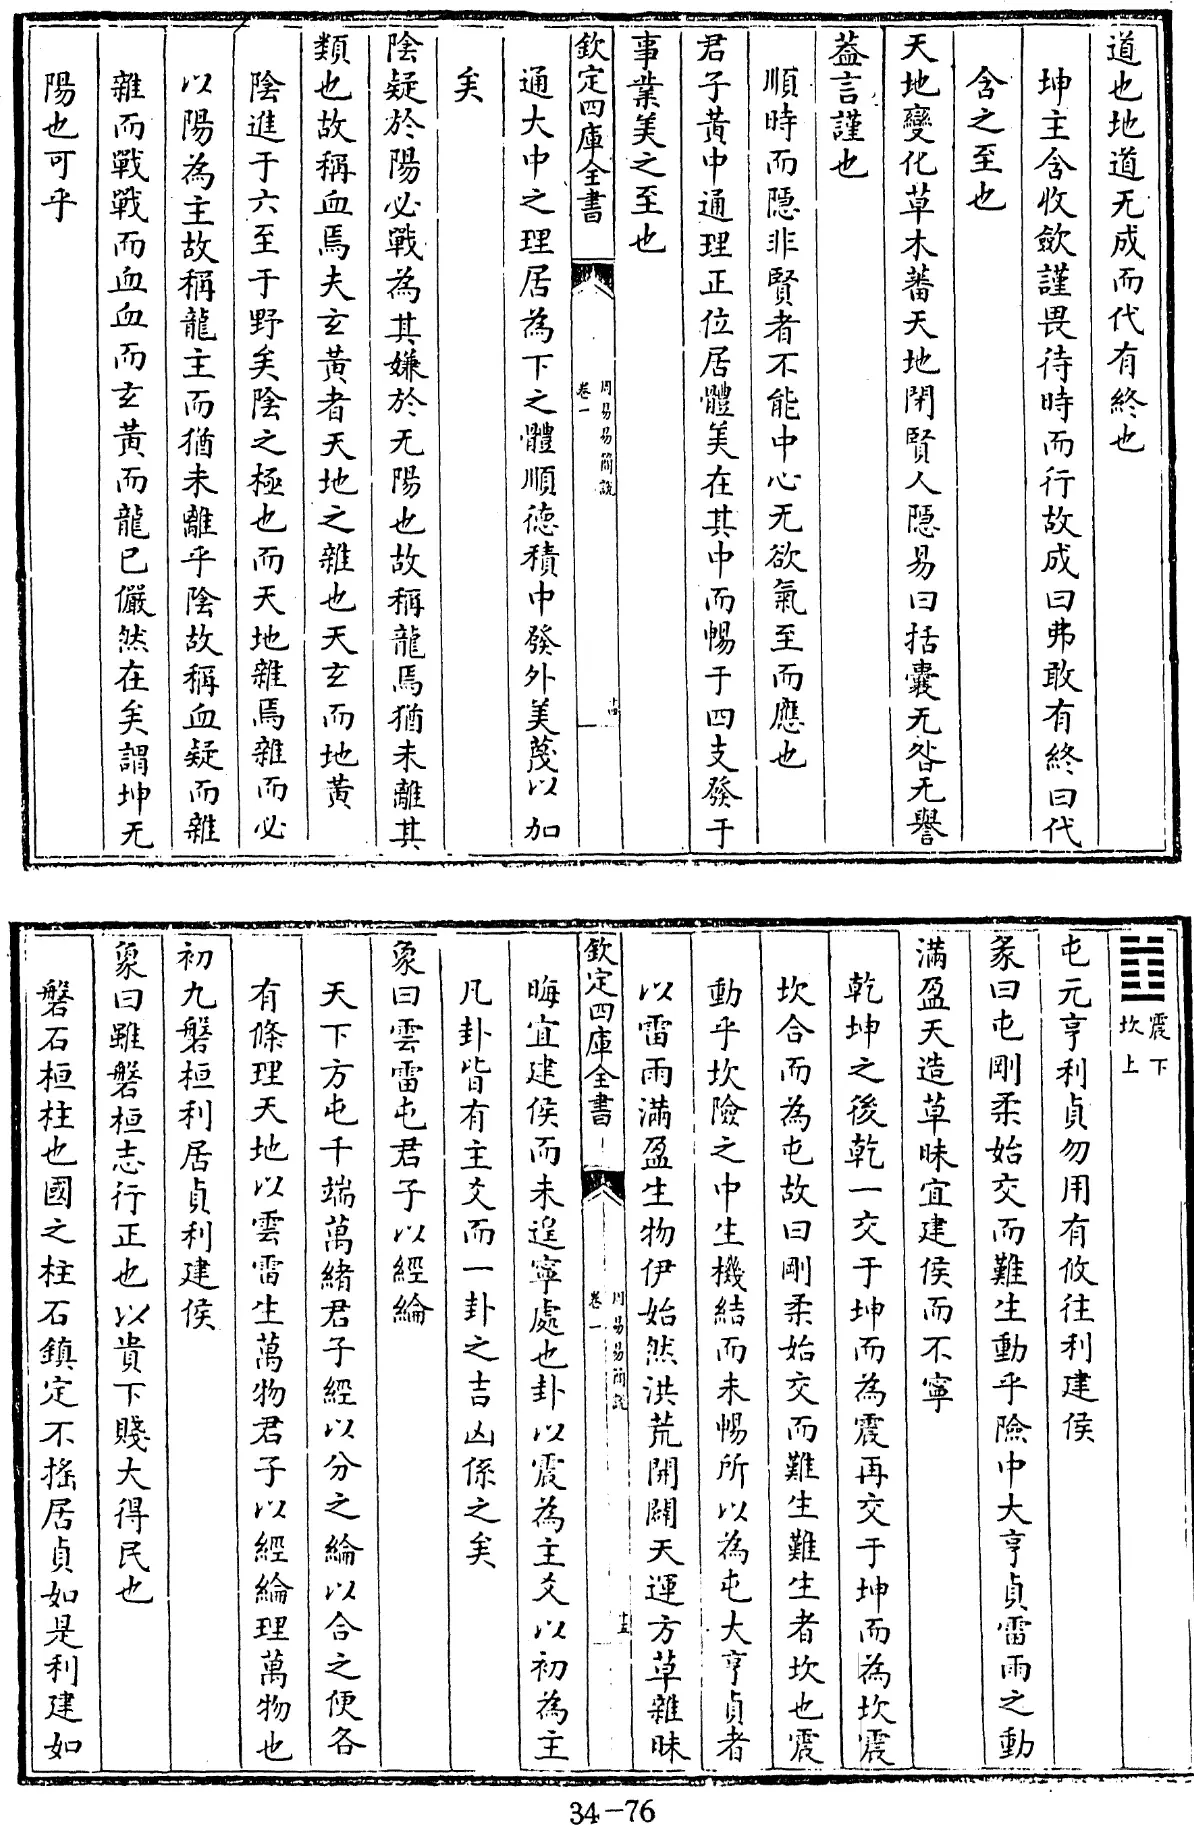 道也地道无成而代有終也
坤主含收歛謹畏待時而行故成曰弗敢有終曰代
含之至也
天地變化草木蕃天地閉賢人隠易曰括囊无咎无譽
葢言謹也
順時而隠非賢者不能中心无欲氣至而應也
君子黄中通理正位居體美在其中而暢于四支發于
事業美之至也
欽定四庫全書
周易易簡說
卷一
十四
通大中之理居為下之體順德積中發外美蔑以加
矣
陰疑於陽必戰為其嫌於无陽也故稱龍焉猶未離其
類也故稱血焉夫玄黄者天地之雜也天玄而地黄
陰進于六至于野矣陰之極也而天地雜焉雜而必
以陽為主故稱龍主而猶未離乎陰故稱血疑而雜
雜而戰戰而血血而玄黄而龍已儼然在矣謂坤无
陽也可乎
震下
坎上
屯元亨利貞勿用有攸往利建侯
彖曰屯剛柔始交而難生動乎險中大亨貞雷雨之動
滿盈天造草昧宜建侯而不寧
乾坤之後乾一交于坤而為震再交于坤而為坎震
坎合而為屯故曰剛柔始交而難生難生者坎也震
動乎坎險之中生機結而未暢所以為屯大亨貞者
以雷雨滿盈生物伊始然洪荒開闢天運方草雜昧
欽定四庫全書
周易易簡說
卷一
十五
晦宜建侯而未遑寧處也卦以震為主爻以初為主
凡卦皆有主爻而一卦之吉凶係之矣
象曰雲雷屯君子以經綸
天下方屯千端萬緒君子經以分之綸以合之便各
有條理天地以雲雷生萬物君子以經綸理萬物也
初九磐桓利居貞利建侯
象曰雖磐桓志行正也以貴下賤大得民也
磐石桓柱也國之柱石鎮定不搖居貞如是利建如
34-76